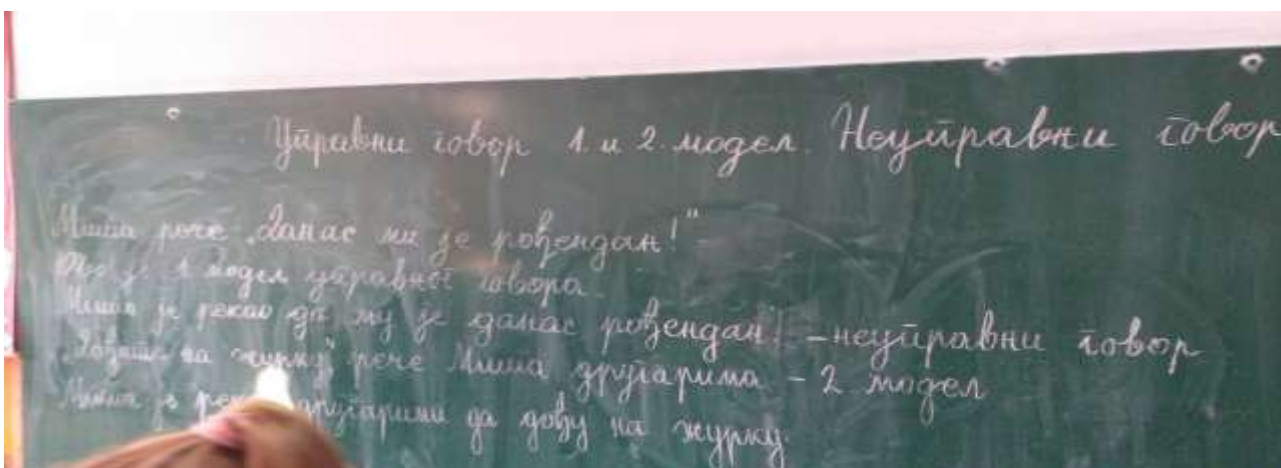 Управни говор 1. и 2. модел. Неуправни говор
Миша рече „Данас ми је рођендан!"
Ово је 1 модел управног говора.
Миша је рекао да му је данас рођендан. – неуправни говор
„Дођите на журку", рече Миша другарима – 2. модел
Миша је другарима да дођу на журку.